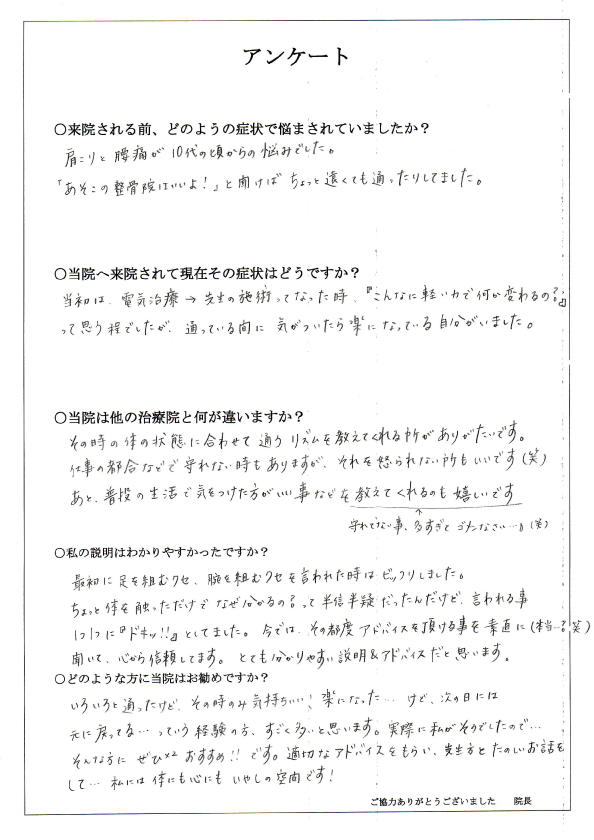 アンケート
○来院される前、どのようの症状で悩まされていましたか？
肩こりと腰痛が10代の頃からの悩みでした。
「あそこの整骨院はいいよ！」と聞けばちょっと遠くても通ったりしてました。
○当院へ来院されて現在その症状はどうですか？
当初は、電気治療→先生の施術ってなった時、『こんなに軽い力で何が変わるの？』
って思う程でしたが、通っている間に気がついたら楽になっている自分がいました。
○当院は他の治療院と何が違いますか？
その時の体の状態に合わせて通うリズムを教えてくれる所がありがたいです。
仕事の都合などで守れない時もありますが、それを怒られない所もいいです(笑)
あと、普段の生活で気をつけた方がいい事などを教えてくれるのも嬉しいです
↑
守れてない事、多すぎてごめんなさい…。(笑)
○私の説明はわかりやすかったですか？
最初に足を組むクセ、腕を組むクセを言われた時はビックリしました。
ちょっと体を触っただけでなぜ分かるの？って半信半疑だったんだけど、言われる事
1つ1つに『ドキッ!!』としてました。今では、その都度アドバイスを頂ける事を素直に(本当…？笑)
聞いて、心から信頼してます。とても分かりやすい説明&アドバイスだと思います。
○どのような方に当院はお勧めですか？
いろいろと通ったけど、その時のみ気持ちいい！楽になった…けど、次の日には
元に戻ってる…っていう経験の方、すごく多いと思います。実際に私がそうでしたので…
そんな方にぜひ×2おすすめ!!です。適切なアドバイスをもらい、先生方とたのしいお話を
して…私には体にも心にもいやしの空間です！
ご協力ありがとうございました　院長